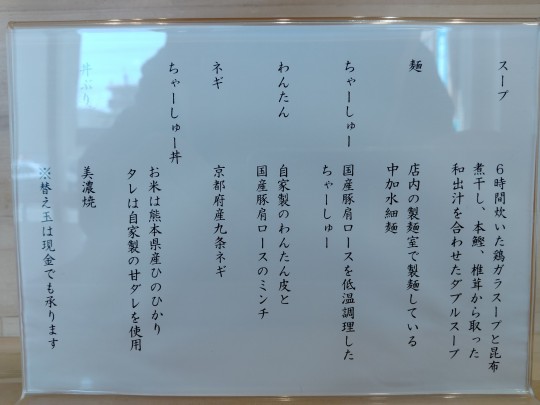 スープ
6時間炊いた鶏ガラスープと昆布
煮干し、本鰹、椎茸から取った
和出汁を合わせたダブルスープ
麺
店内の製麺室で製麺している
中加水細麺
ちゃーしゅー
国産豚肩ロースを低温調理した
ちゃーしゅー
わんたん
自家製のわんたん皮と
国産豚肩ロースのミンチ
ネギ
京都府産九条ネギ
ちゃーしゅー丼
お米は熊本県産ひのひかり
タレは自家製の甘ダレを使用
丼ぶり
美濃焼
※替え玉は現金でも承ります